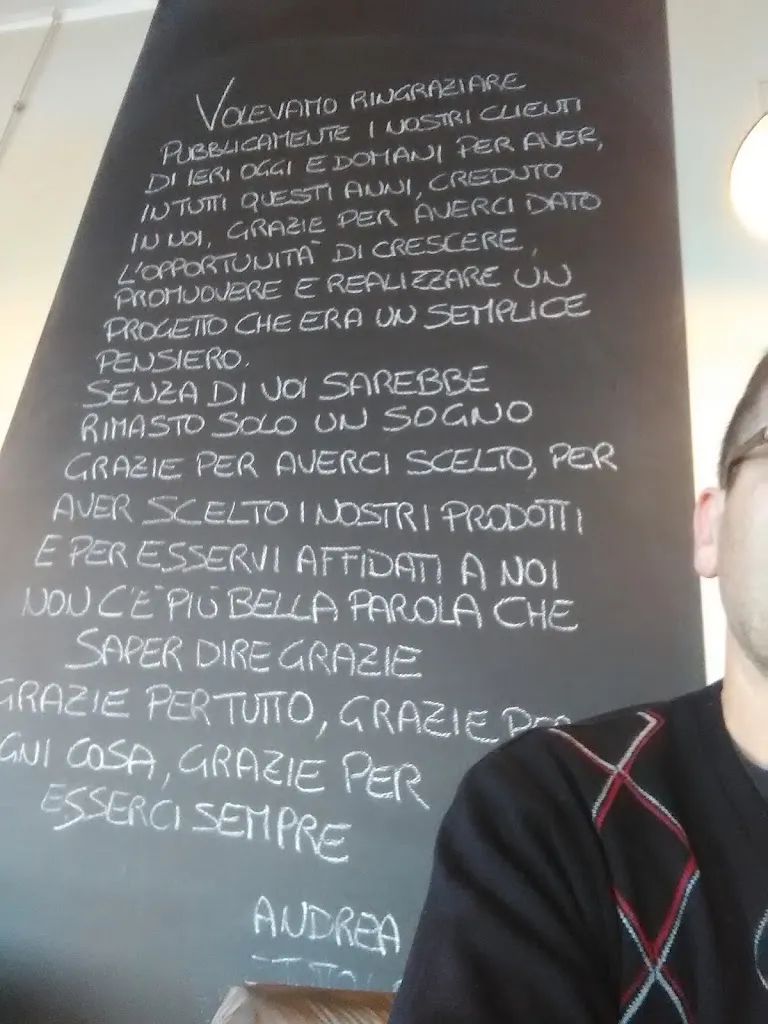 VOLEVAMO RINGRAZIARE
PUBBLICAMENTE I NOSTRI CLIENTI
DI IERI OGGI E DOMANI PER AVER,
IN TUTTI QUESTI ANNI, CREDUTO
IN NOI, GRAZIE PER AVERCI DATO
L'OPPORTUNITÀ DI CRESCERE,
PROMUOVERE E REALIZZARE UN
PROGETTO CHE ERA UN SEMPLICE
PENSIERO.
SENZA DI VOI SAREBBE
RIMASTO SOLO UN SOGNO
GRAZIE PER AVERCI SCELTO, PER
AVER SCELTO I NOSTRI PRODOTTI
E PER ESSERVI AFFIDATI A NOI
NON C'È PIÙ BELLA PAROLA CHE
SAPER DIRE GRAZIE
GRAZIE PER TUTTO, GRAZIE PER
GNI COSA, GRAZIE PER
ESSERCI SEMPRE
ANDREA